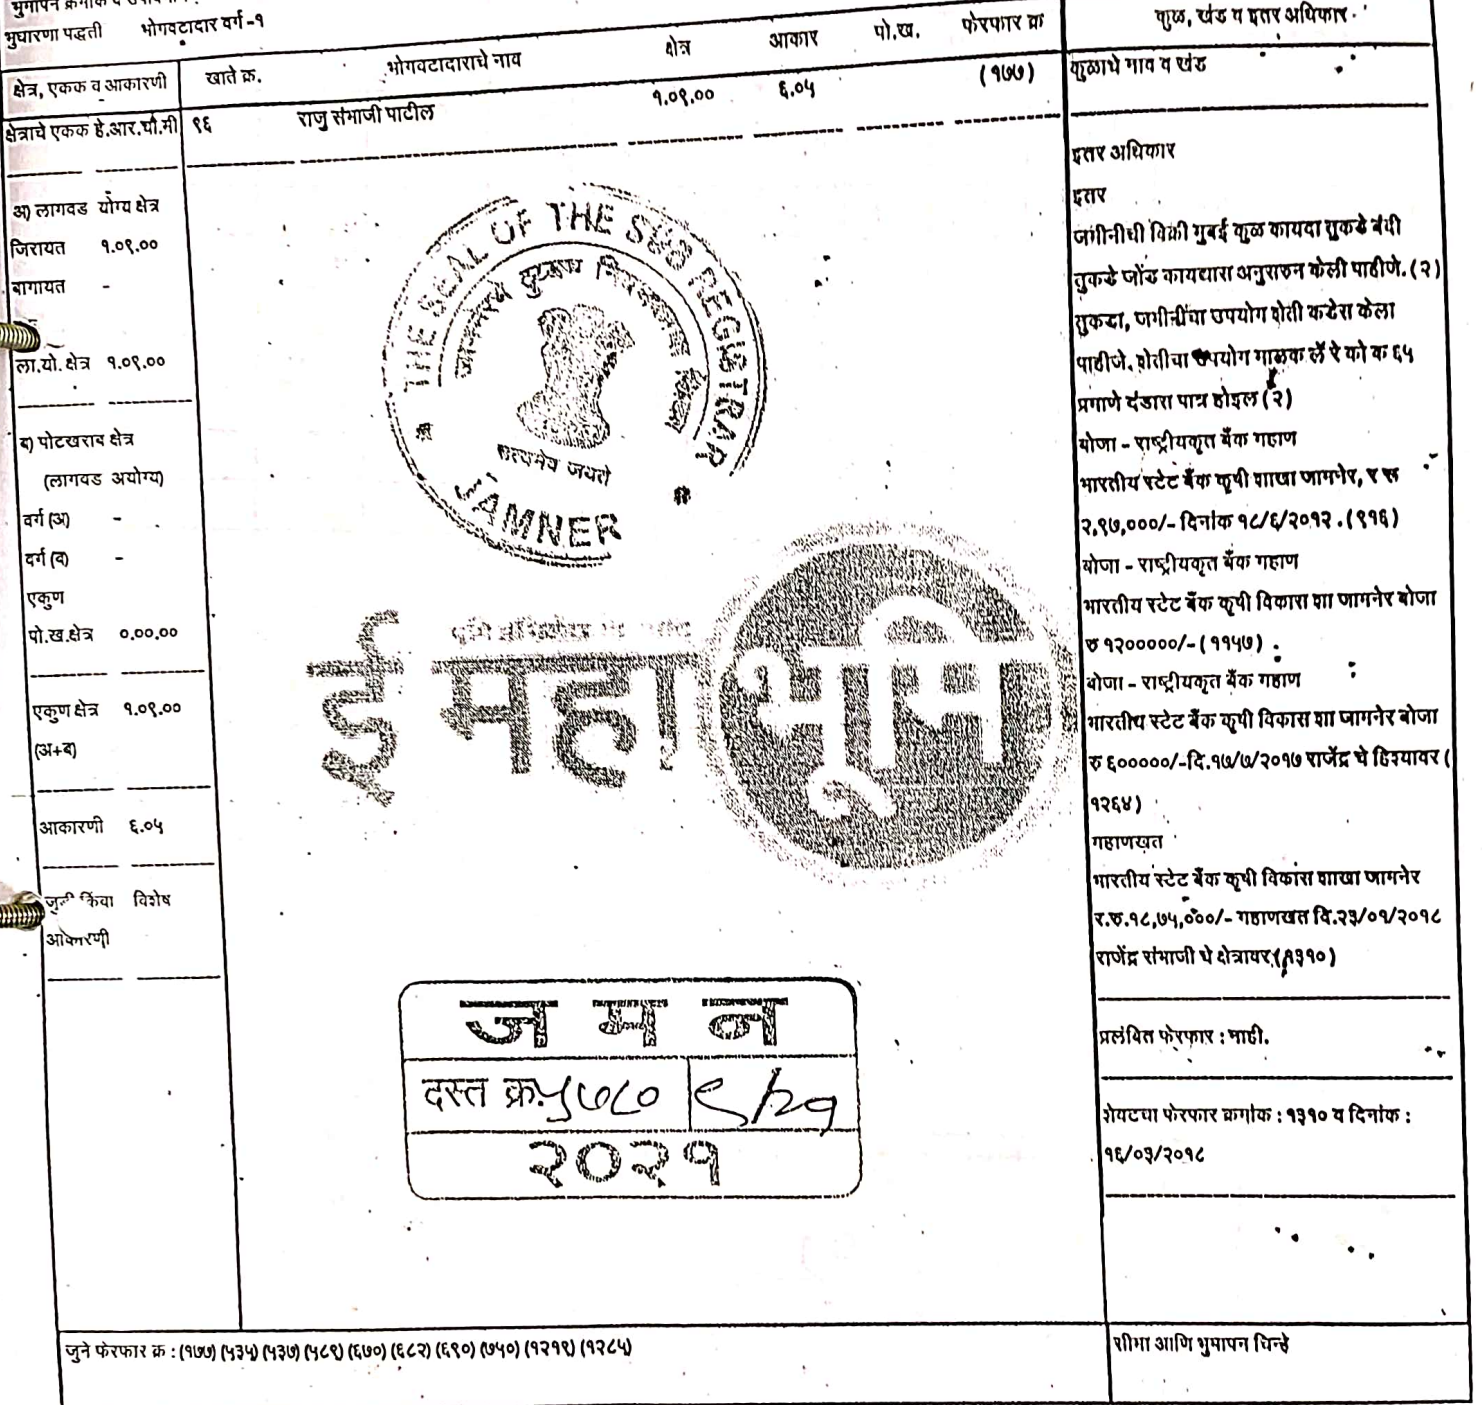 भुधारणा पद्धती भोगवटादार वर्ग -१
कुळ, खंड व इतर अधिकार
क्षेत्र, एकक व आकारणी खाते क्र. भोगवटादाराचे नाव क्षेत्र आकार पो.ख. फेरफार क्र
कुळाचे नाव व खंड
क्षेत्राचे एकक हे.आर.चौ.मी ९६ राजु संभाजी पाटील १.०९.०० ६.०५ (१७७)
अ) लागवड योग्य क्षेत्र
जिरायत १.०९.००
बागायत -
ला.यो. क्षेत्र १.०९.००
ब) पोटखराब क्षेत्र
(लागवड अयोग्य)
वर्ग (अ) -
वर्ग (ब) -
एकुण
पो.ख.क्षेत्र ०.००.००
एकुण क्षेत्र १.०९.००
(अ+ब)
आकारणी ६.०५
जुडी किंवा विशेष
आकारणी
THE SEAL OF THE SUB REGISTRAR
सत्यमेव जयते
JAMNER
ई महाभूमि
ज म न
दस्त क्र. ५७८० ९/२१
२०२१
इतर अधिकार
इतर
जमीनीची विक्री मुंबई कुळ कायदा तुकडे बंदी
तुकडे जोड कायद्यास अनुसरुन केली पाहीजे. (२)
तुकडा, जमीनीचा उपयोग शेती कडेस केला
पाहीजे. शेतीचा उपयोग मालक लँ रे को क ६५
प्रमाणे दंडास पात्र होइल (२)
बोजा - राष्ट्रीयकृत बँक गहाण
भारतीय स्टेट बँक कृषी शाखा जामनेर, र रू
२,९७,०००/- दिनांक १८/६/२०१२ . (९१६)
बोजा - राष्ट्रीयकृत बँक गहाण
भारतीय स्टेट बँक कृषी विकास शा जामनेर बोजा
रु १२०००००/- (११५७)
बोजा - राष्ट्रीयकृत बँक गहाण
भारतीय स्टेट बँक कृषी विकास शा जामनेर बोजा
रु ६०००००/-दि.१७/७/२०१७ राजेंद्र चे हिश्यावर (
१२६४)
गहाणखत
भारतीय स्टेट बँक कृषी विकास शाखा जामनेर
र.रु.१८,७५,०००/- गहाणखत दि.२३/०१/२०१८
राजेंद्र संभाजी चे क्षेत्रावर (१३१०)
प्रलंबित फेरफार : नाही.
शेवटचा फेरफार क्रमांक : १३१० व दिनांक :
१६/०३/२०१८
जुने फेरफार क्र : (१७७) (५३५) (५३७) (५८९) (६७०) (६८२) (६९०) (७५०) (१२१९) (१२८५)
सीमा आणि भुमापन चिन्हे